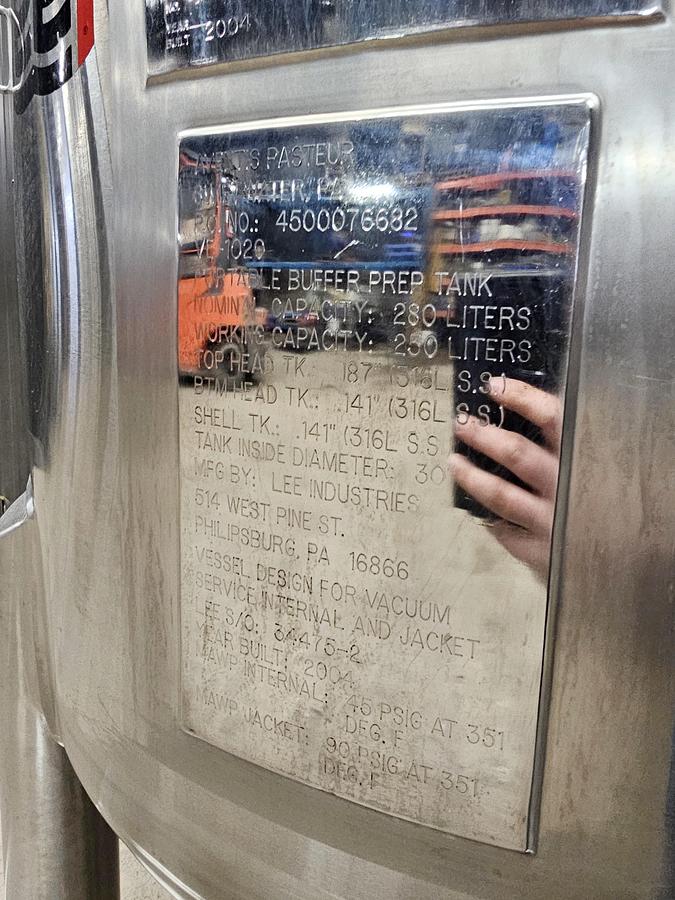 NO.
YEAR BUILT 2004
PASTEUR
NO.: 4500076682
1020
PORTABLE BUFFER PREP TANK
NOMINAL CAPACITY: 280 LITERS
WORKING CAPACITY: 250 LITERS
TOP HEAD TK.: .187" (316L S.S.)
BTM HEAD TK.: .141" (316L S.S.)
SHELL TK.: .141" (316L S.S
TANK INSIDE DIAMETER: 30
MFG BY: LEE INDUSTRIES
514 WEST PINE ST.
PHILIPSBURG, PA 16866
VESSEL DESIGN FOR VACUUM
SERVICE INTERNAL AND JACKET
LEE S/O: 34475-2
YEAR BUILT: 2004
MAWP INTERNAL: 45 PSIG AT 351
DEG. F
MAWP JACKET: 90 PSIG AT 351
DEG. F